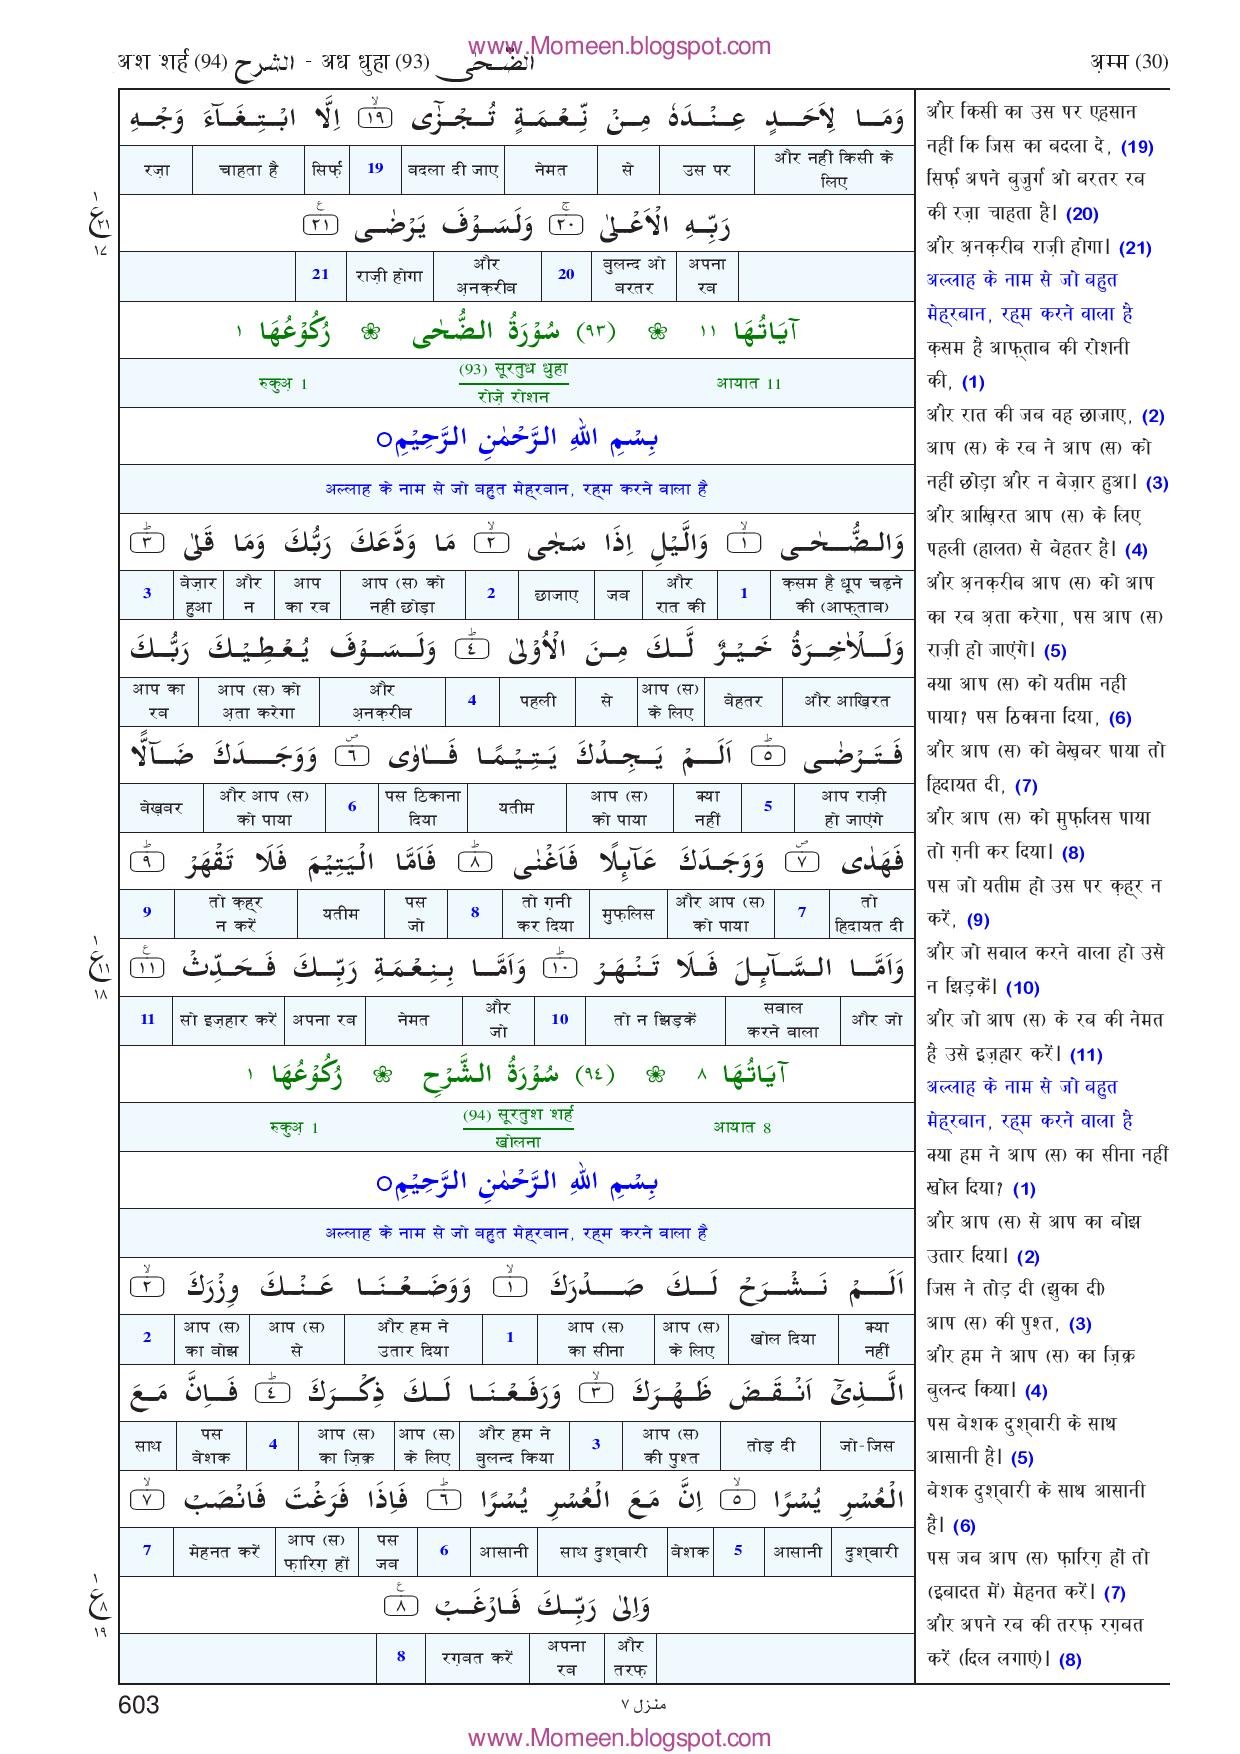 www.Momeen.blogspot.com
अश शर्ह (94) الشرح - अध धुहा (93) الضّحى
अ़म्म (30)
وَمَا لِاَحَدٍ عِنْدَهٗ مِنْ نِّعْمَةٍ تُجْزٰٓى ١٩ اِلَّا ابْتِغَآءَ وَجْهِ
रज़ा चाहता है सिर्फ़ 19 बदला दी जाए नेमत से उस पर और नहीं किसी के लिए
رَبِّهِ الْاَعْلٰى ٢٠ وَلَسَوْفَ يَرْضٰى ٢١
21 राज़ी होगा और अ़नक़रीब 20 बुलन्द ओ बरतर अपना रब
١ ع ٢١ ١٧
آيَاتُهَا ١١ ❀ (٩٣) سُوْرَةُ الضُّحٰى ❀ رُكُوْعُهَا ١
रुकुअ़ 1 (93) सूरतुध धुहा आयात 11
रोज़े रोशन
بِسْمِ اللّٰهِ الرَّحْمٰنِ الرَّحِيْمِ○
अल्लाह के नाम से जो बहुत मेहरबान, रह्म करने वाला है
وَالضُّحٰى ١ وَالَّيْلِ اِذَا سَجٰى ٢ مَا وَدَّعَكَ رَبُّكَ وَمَا قَلٰى ٣
3 बेज़ार हुआ और न आप का रब आप (स) को नहीं छोड़ा 2 छाजाए जब और रात की 1 क़सम है धूप चढ़ने की (आफ़्ताब)
وَلَلْاٰخِرَةُ خَيْرٌ لَّكَ مِنَ الْاُوْلٰى ٤ وَلَسَوْفَ يُعْطِيْكَ رَبُّكَ
आप का रब आप (स) को अ़ता करेगा और अ़नक़रीब 4 पहली से आप (स) के लिए बेहतर और आख़िरत
فَتَرْضٰى ٥ اَلَمْ يَجِدْكَ يَتِيْمًا فَاٰوٰى ٦ وَوَجَدَكَ ضَآلًّا
बेख़बर और आप (स) को पाया 6 पस ठिकाना दिया यतीम आप (स) को पाया क्या नहीं 5 आप राज़ी हो जाएंगे
فَهَدٰى ٧ وَوَجَدَكَ عَآئِلًا فَاَغْنٰى ٨ فَاَمَّا الْيَتِيْمَ فَلَا تَقْهَرْ ٩
9 तो क़ह्र न करें यतीम पस जो 8 तो ग़नी कर दिया मुफ़लिस और आप (स) को पाया 7 तो हिदायत दी
وَاَمَّا السَّآئِلَ فَلَا تَنْهَرْ ١٠ وَاَمَّا بِنِعْمَةِ رَبِّكَ فَحَدِّثْ ١١
11 सो इज़हार करें अपना रब नेमत और जो 10 तो न झिड़कें सवाल करने वाला और जो
١ ع ١١ ١٨
آيَاتُهَا ٨ ❀ (٩٤) سُوْرَةُ الشَّرْحِ ❀ رُكُوْعُهَا ١
रुकुअ़ 1 (94) सूरतुश शर्ह आयात 8
खोलना
بِسْمِ اللّٰهِ الرَّحْمٰنِ الرَّحِيْمِ○
अल्लाह के नाम से जो बहुत मेहरबान, रह्म करने वाला है
اَلَمْ نَشْرَحْ لَكَ صَدْرَكَ ١ وَوَضَعْنَا عَنْكَ وِزْرَكَ ٢
2 आप (स) का बोझ आप (स) से और हम ने उतार दिया 1 आप (स) का सीना आप (स) के लिए खोल दिया क्या नहीं
الَّذِىْٓ اَنْقَضَ ظَهْرَكَ ٣ وَرَفَعْنَا لَكَ ذِكْرَكَ ٤ فَاِنَّ مَعَ
साथ पस बेशक 4 आप (स) का ज़िक्र आप (स) के लिए और हम ने बुलन्द किया 3 आप (स) की पुश्त तोड़ दी जो-जिस
الْعُسْرِ يُسْرًا ٥ اِنَّ مَعَ الْعُسْرِ يُسْرًا ٦ فَاِذَا فَرَغْتَ فَانْصَبْ ٧
7 मेहनत करें आप (स) फ़ारिग़ हों पस जब 6 आसानी साथ दुश्वारी बेशक 5 आसानी दुश्वारी
وَاِلٰى رَبِّكَ فَارْغَبْ ٨
8 रग़बत करें अपना रब और तरफ़
١ ع ٨ ١٩
और किसी का उस पर एहसान
नहीं कि जिस का बदला दे, (19)
सिर्फ़ अपने बुज़ुर्ग ओ बरतर रब
की रज़ा चाहता है। (20)
और अ़नक़रीब राज़ी होगा। (21)
अल्लाह के नाम से जो बहुत
मेह्रबान, रह्म करने वाला है
क़सम है आफ़्ताब की रोशनी
की, (1)
और रात की जब वह छाजाए, (2)
आप (स) के रब ने आप (स) को
नहीं छोड़ा और न बेज़ार हुआ। (3)
और आख़िरत आप (स) के लिए
पहली (हालत) से बेहतर है। (4)
और अ़नक़रीब आप (स) को आप
का रब अ़ता करेगा, पस आप (स)
राज़ी हो जाएंगे। (5)
क्या आप (स) को यतीम नहीं
पाया? पस ठिकाना दिया, (6)
और आप (स) को बेख़बर पाया तो
हिदायत दी, (7)
और आप (स) को मुफ़लिस पाया
तो ग़नी कर दिया। (8)
पस जो यतीम हो उस पर क़ह्र न
करें, (9)
और जो सवाल करने वाला हो उसे
न झिड़कें। (10)
और जो आप (स) के रब की नेमत
है उसे इज़हार करें। (11)
अल्लाह के नाम से जो बहुत
मेह्रबान, रह्म करने वाला है
क्या हम ने आप (स) का सीना नहीं
खोल दिया? (1)
और आप (स) से आप का बोझ
उतार दिया। (2)
जिस ने तोड़ दी (झुका दी)
आप (स) की पुश्त, (3)
और हम ने आप (स) का ज़िक्र
बुलन्द किया। (4)
पस बेशक दुश्वारी के साथ
आसानी है। (5)
बेशक दुश्वारी के साथ आसानी
है। (6)
पस जब आप (स) फ़ारिग़ हों तो
(इबादत में) मेहनत करें। (7)
और अपने रब की तरफ़ रग़बत
करें (दिल लगाएं)। (8)
603
منزل ٧
www.Momeen.blogspot.com